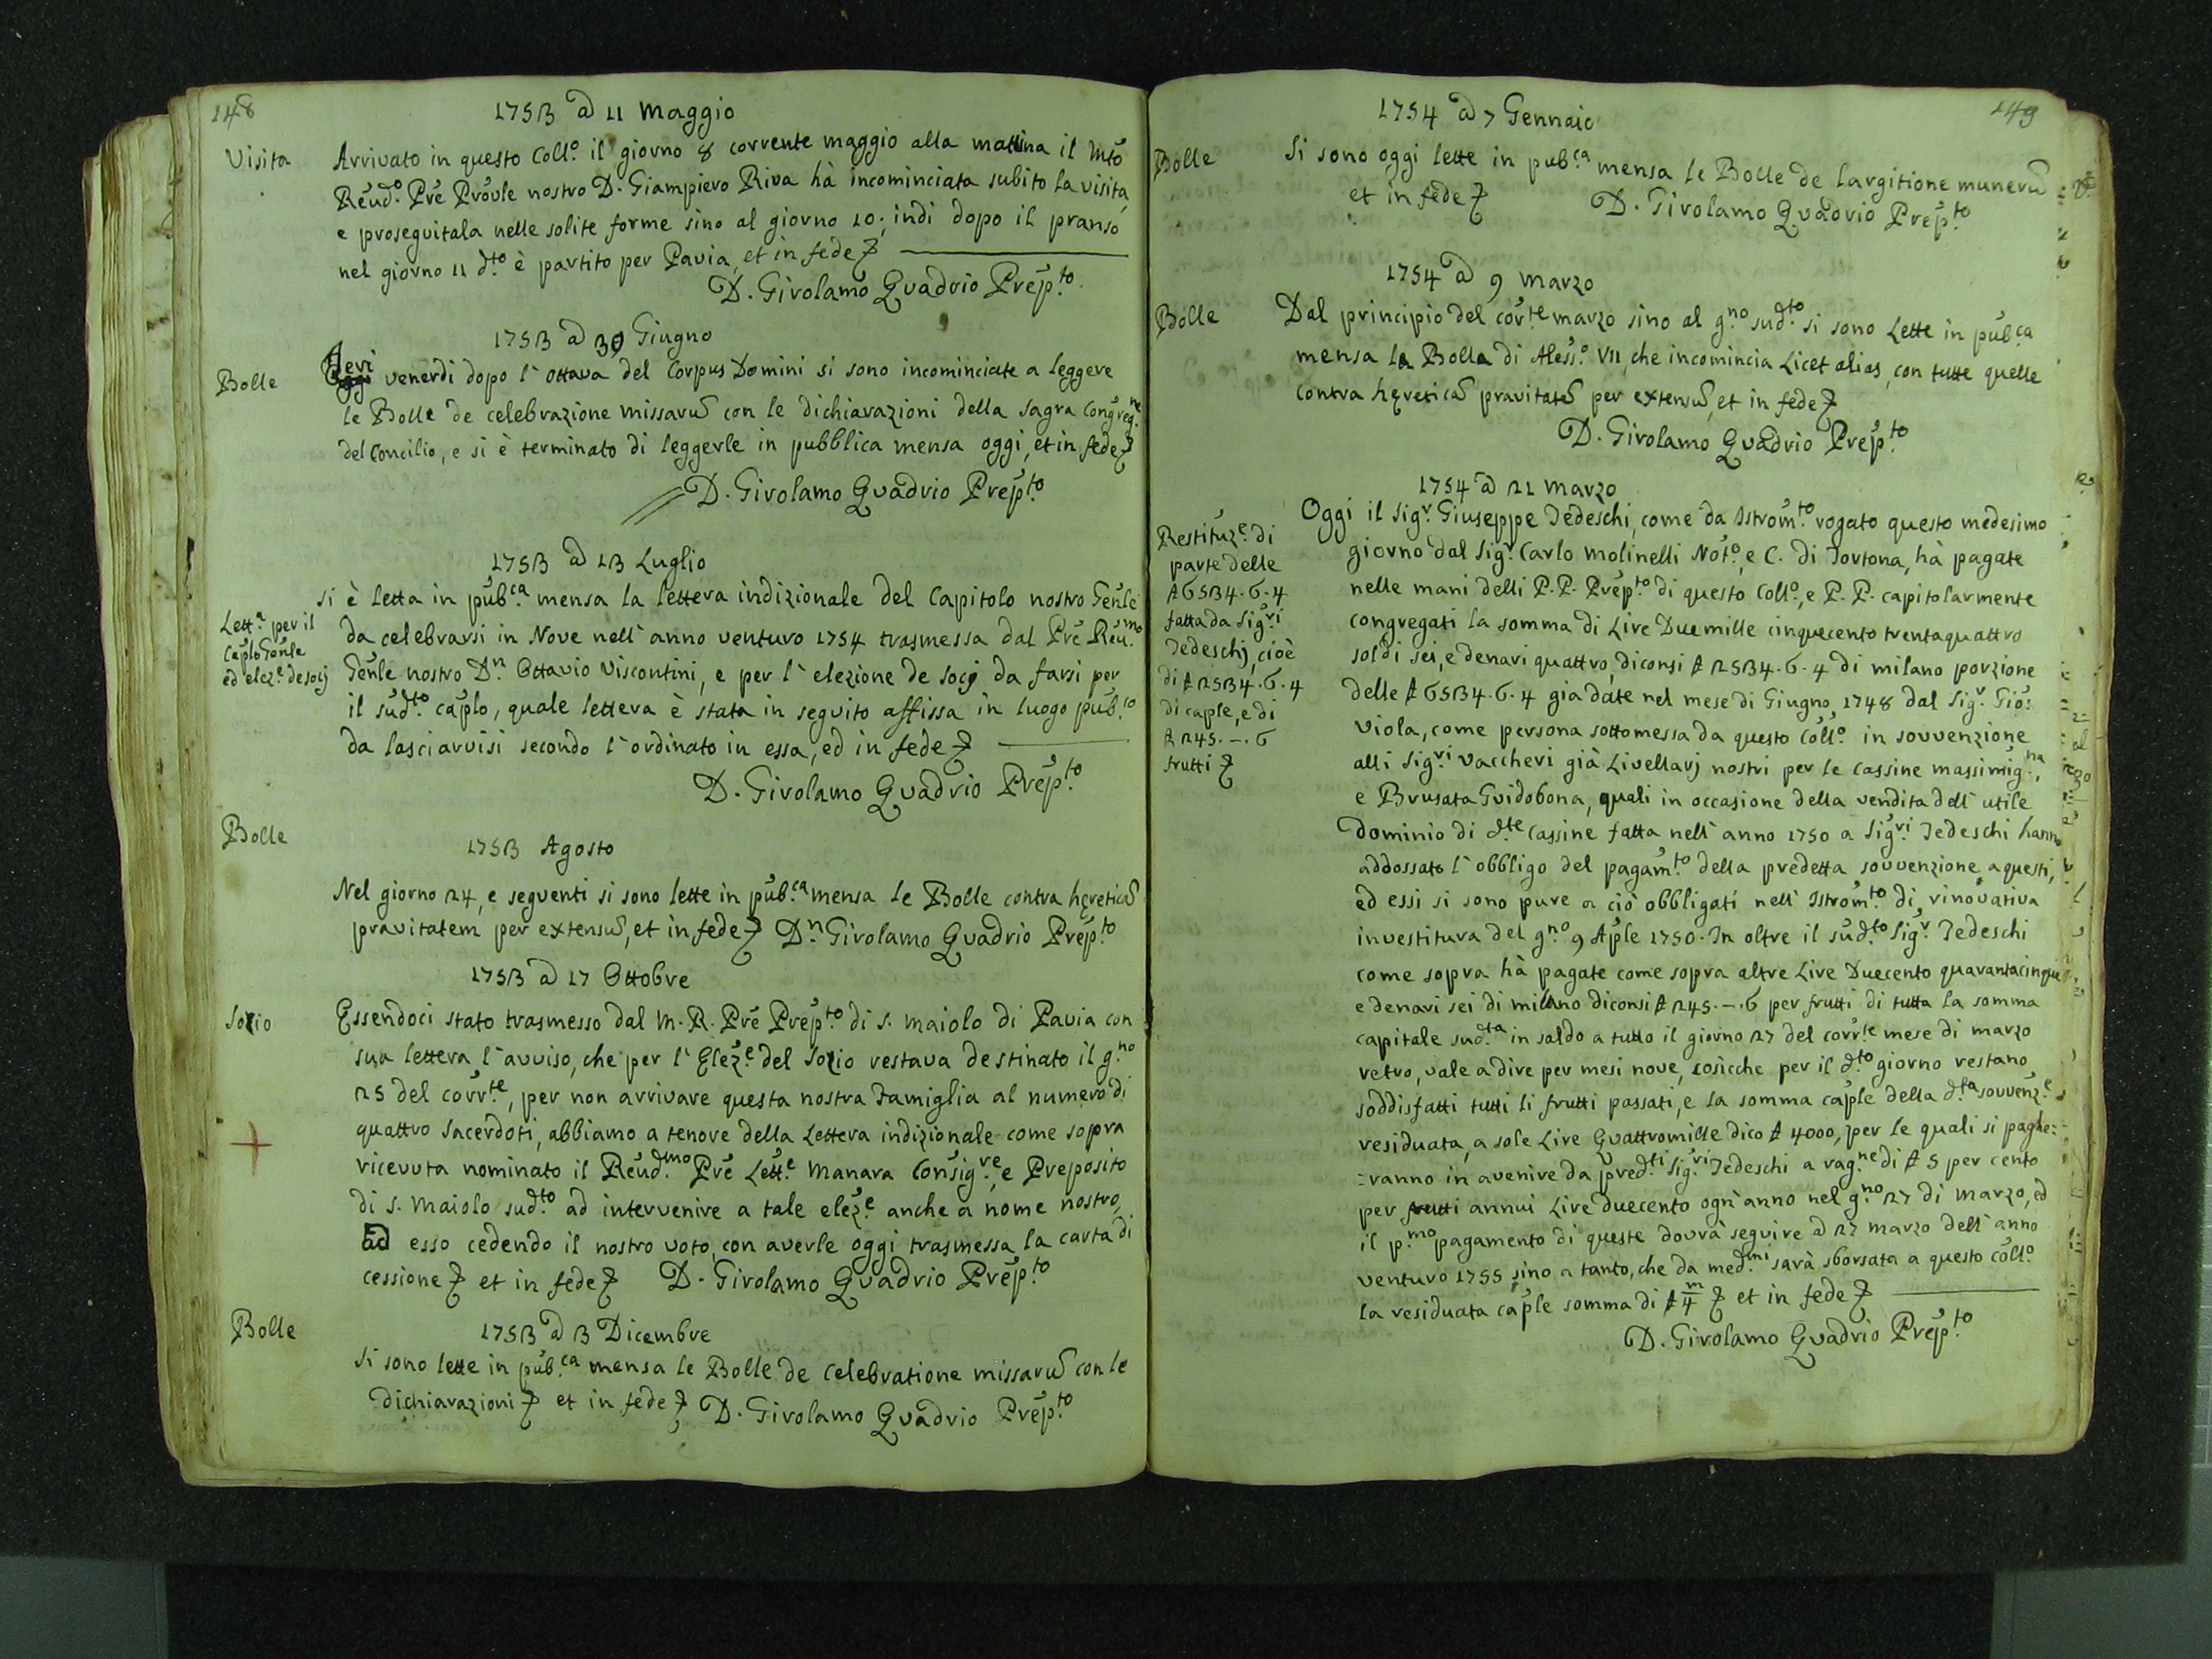 148
1753 a 11 Maggio
Visita
Arrivato in questo Coll.o il giorno 8 corrente maggio alla mattina il Mto
Reud.o Pre Proule nostro D. Giampiero Riva hà incominciata subito la visita,
e proseguitala nelle solite forme sino al giorno 10; indi dopo il pranso
nel giorno 11 d.to è partito per Pavia, et in fede
D. Girolamo Quadrio Prep.to
1753 a 30 Giugno
Bolle
Jeri venerdi dopo l'ottava del Corpus Domini si sono incominciate a leggere
le Bolle de celebrazione missarum con le dichiarazioni della sagra Congreg.ne
del Concilio, e si è terminato di leggerle in pubblica mensa oggi, et in fede
D. Girolamo Quadrio Prep.to
1753 a 13 Luglio
Lett.a per il
Caplo Genle
ed elez.e de socj
si è letta in pub.ca mensa la lettera indizionale del Capitolo nostro Genle
da celebrarsi in Nove nell'anno venturo 1754 trasmessa dal Pre Reu.mo
Genle nostro D.n Ottavio Viscontini, e per l'elezione de socj da farsi per
il sud.to caplo, quale lettera è stata in seguito affissa in luogo pub.co
da lasciarvisi secondo l'ordinato in essa, ed in fede
D. Girolamo Quadrio Prep.to
Bolle
1753 Agosto
Nel giorno 24, e seguenti si sono lette in pub.ca mensa le Bolle contra hereticam
pravitatem per extensum, et in fede D.n Girolamo Quadrio Prep.to
1753 a 17 Ottobre
Sozio
Essendoci stato trasmesso dal M. R. Pre Prep.to di S. Maiolo di Pavia con
sua lettera l'avviso, che per l'Elez.e del Sozio restava destinato il g.no
25 del corr.te, per non arrivare questa nostra Famiglia al numero di
quattro Sacerdoti, abbiamo a tenore della Lettera indizionale come sopra
ricevuta nominato il Reud.mo Pre Lett.e Manara Consig.re, e Preposito
di S. Maiolo sud.to ad intervenire a tale elez.e anche a nome nostro,
ad esso cedendo il nostro voto, con averle oggi trasmessa la carta di
cessione et in fede D. Girolamo Quadrio Prep.to
Bolle
1753 a 3 Dicembre
Si sono lette in pub.ca mensa le Bolle de celebratione missarum con le
dichiarazioni et in fede D. Girolamo Quadrio Prep.to
149
1754 a 7 Gennaio
Bolle
Si sono oggi lette in pub.ca mensa le Bolle de largitione munerum
et in fede D. Girolamo Quadrio Prep.to
1754 a 9 Marzo
Bolle
Dal principio del cor.te marzo sino al g.no sud.to si sono Lette in pub.ca
mensa la Bolla di Aless.o VII, che incomincia Licet alias, con tutte quelle
contra hereticam pravitatem per extensum, et in fede
D. Girolamo Quadrio Prep.to
1754 a 21 Marzo
Restituz.e di
parte delle
£ 6534.6.4
fatta da Sig.ri
Tedeschj, cioè
di £ 2534.6.4
di caple, e di
£ 245.-.6
frutti
Oggi il Sig.r Giuseppe Tedeschi, come da Istrom.to rogato questo medesimo
giorno dal Sig.r Carlo Molinelli Not.o, e C. di Tortona, hà pagate
nelle mani delli P.P. Prep.to di questo Coll.o, e P.P. capitolarmente
congregati la somma di Lire Duemille cinquecento trentaquattro
soldi sei, e denari quattro, diconsi £ 2534.6.4 di milano porzione
delle £ 6534.6.4 gia date nel mese di Giugno 1748 dal Sig.r Gio:
Viola, come persona sottomessa da questo Coll.o in sovvenzione
alli Sig.ri Vaccheri già Livellarj nostri per le cassine massimig.na,
e Brusata Guidobona, quali in occasione della vendita dell'utile
Dominio di d.te Cassine fatta nell'anno 1750 a Sig.ri Tedeschi hanno
addossato l'obbligo del pagam.to della predetta sovvenzione a questi,
ed essi si sono pure a ciò obbligati nell'Istrom.to di rinovativa
investitura del g.no 9 Aple 1750. In oltre il sud.to Sig.r Tedeschi
come sopra hà pagate come sopra altre Lire Duecento quarantacinque
e denari sei di milano diconsi £ 245.-.6 per frutti di tutta la somma
capitale sud.ta in saldo a tutto il giorno 27 del corr.te mese di marzo
retro, vale a dire per mesi nove, cosicche per il d.to giorno restano
soddisfatti tutti li frutti passati, e la somma caple della d.ta sovvenz.e
residuata, a sole Lire Quattromille dico £ 4000, per le quali si paghe:
:ranno in avenire da pred.ti Sig.ri Tedeschi a rag.ne di £ 5 per cento
per frutti annui Lire duecento ogn'anno nel g.no 27 di Marzo, ed
il p.mo pagamento di queste dovrà seguire a 27 marzo dell'anno
venturo 1755 sino a tanto, che da med.mi sarà sborsata a questo Coll.o
la residuata caple somma di £ 4m et in fede
D. Girolamo Quadrio Prep.to